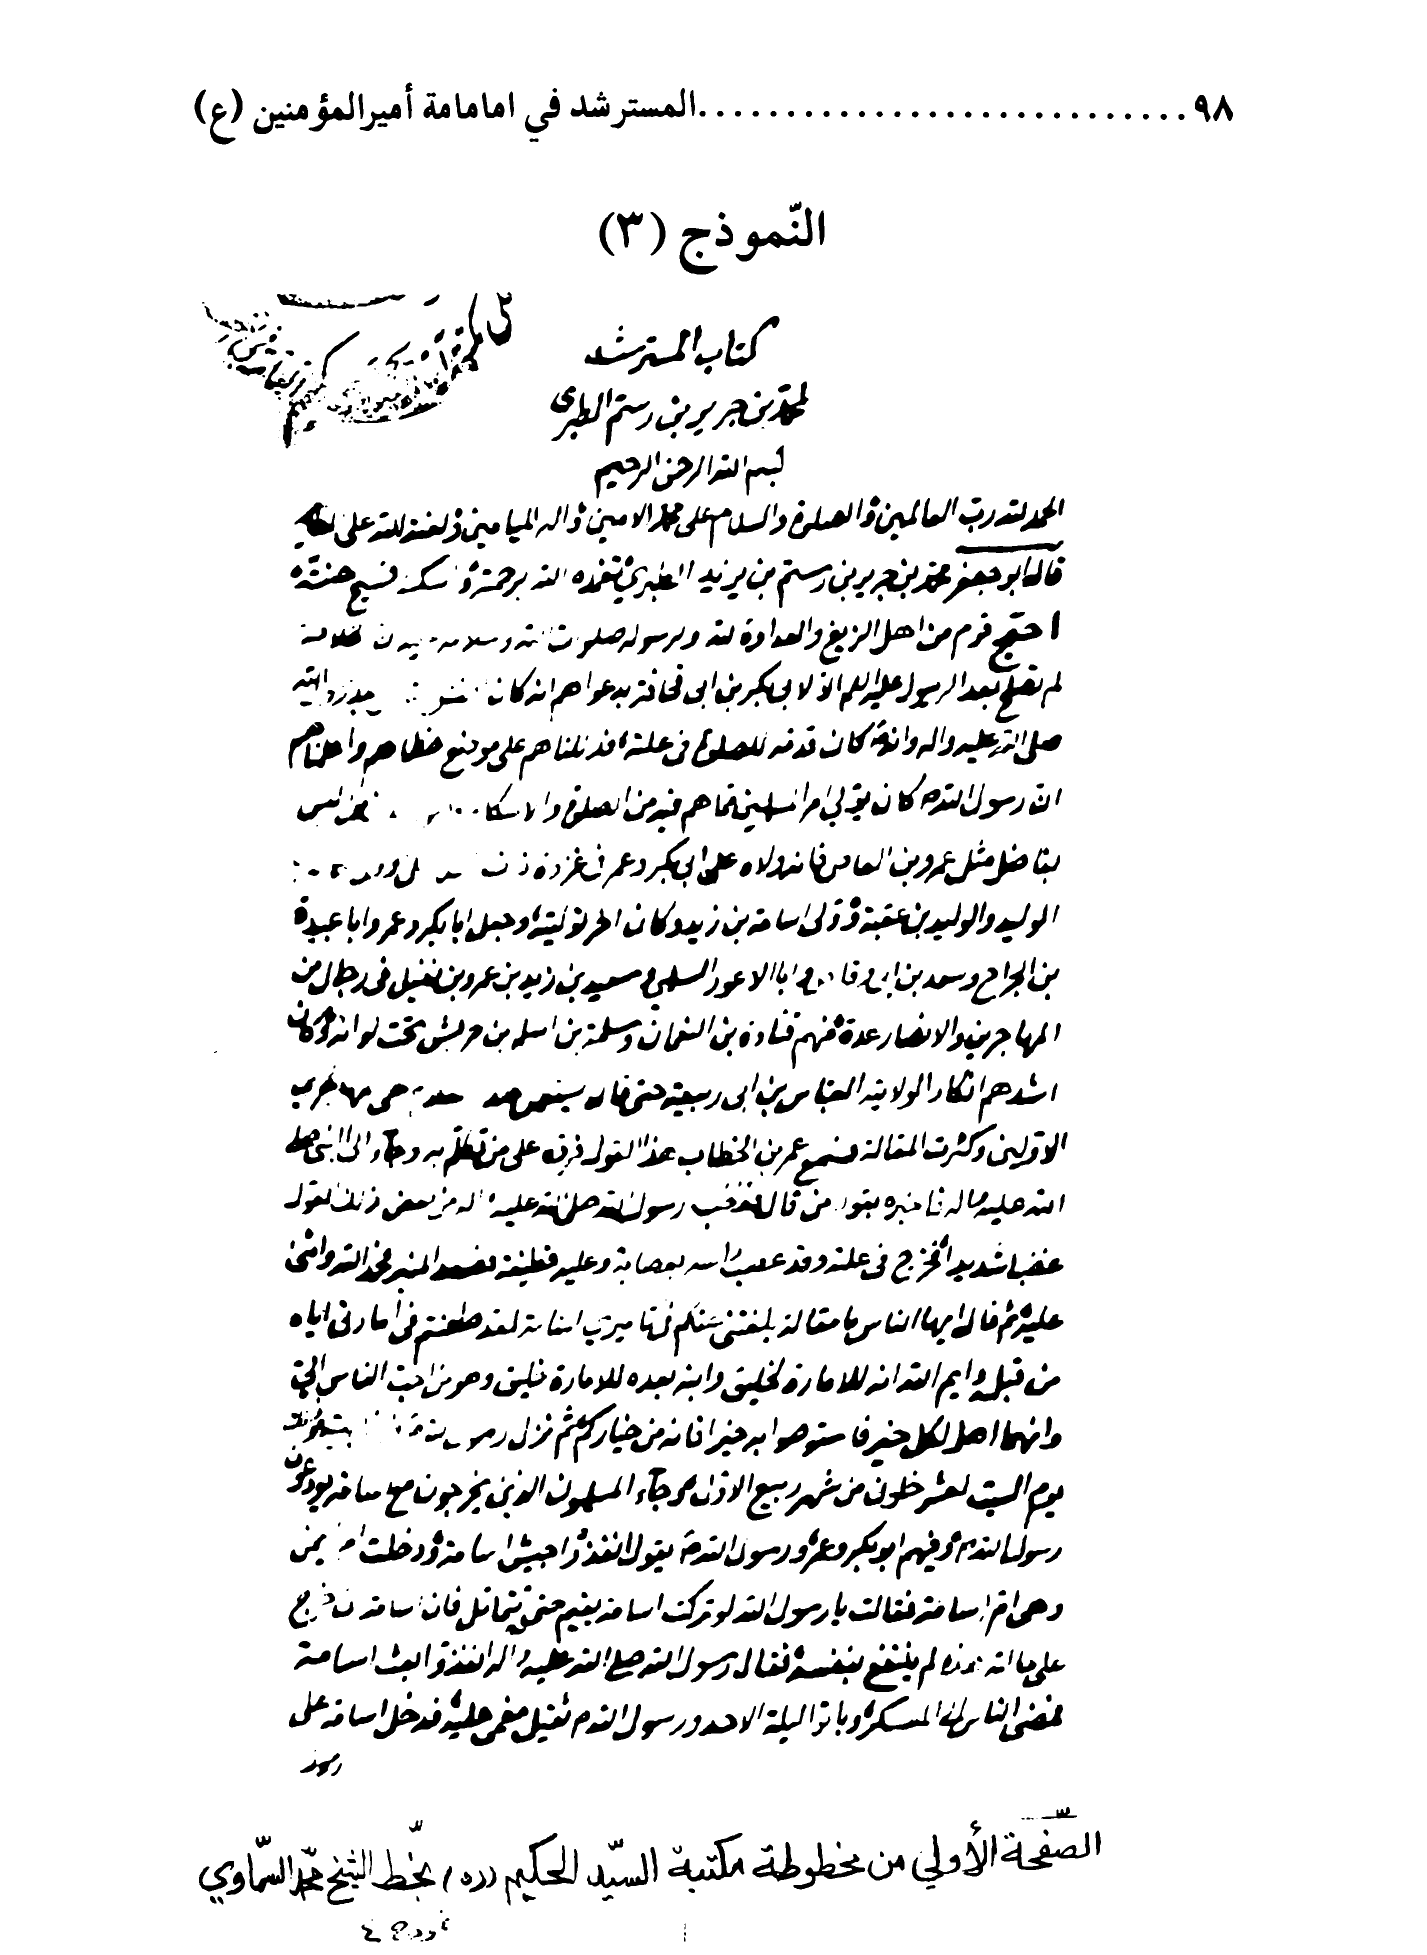 ٩٨............................المسترشد في امامامة أميرالمؤمنين (ع)
النّموذج (٣)
كتاب المسترشد
لمحمد بن جرير بن رستم الطبرى
بسم الله الرحمن الرحيم
الحمد لله رب العالمين والصلوة والسلام على محمد الامين واله الميامين ولعنة الله على
قال ابو جعفر محمد بن جرير بن رستم بن يزيد الطبري تغمده الله برحمته واسكنه فسيح جنته
احتج قوم من اهل الزيغ والعداوة لله ولرسوله صلوات الله وسلامه
لم تصلح بعد الرسول عليه السلم الا لابي بكر بن ابى قحافة بدعواهم انه كان
صلى الله عليه واله وانه كان قدمه للصلوة في علته فدللناهم على موضع خطاهم واعلمناهم
ان رسول الله ص كان يولي
بفاضل مثل عمرو بن العاص فانه ولاه على ابى بكر وعمر في غزوة ذات
الوليد والوليد بن عقبة وولى اسامة بن زيد وكان اخر توليته وجعل ابا بكر وعمر وابا عبيدة
بن الجراح وسعد بن ابى وقاص وابا الاعور السلمي وسعيد بن زيد بن عمرو بن نفيل في رجال من
المهاجرين والانصار عدة منهم قتادة بن النعمان وسلمة بن اسلم بن حريش تحت لوائه وكان
اشدهم انكارا لولايته العباس بن ابى ربيعة حتى قال
الاولين وكثرت المقالة فسمع عمر بن الخطاب هذا القول فرده على من تكلم به وجاء الى النبي صلى
الله عليه واله فاخبره بقول من قال فغضب رسول الله صلى الله عليه واله من بعض ذلك القول
غضبا شديدا فخرج في علته وقد عصب راسه بعصابة وعليه قطيفة فصعد المنبر فحمد الله واثنى
عليه ثم قال ايها الناس ما مقالة بلغتني عنكم في تاميري اسامة لقد طعنتم في امارتي اياه
من قبله وايم الله انه للامارة لخليق وابنه بعده للامارة خليق وهو من احب الناس الي
وانهما اهل لكل خير فاستوصوا به خيرا فانه من خياركم ثم نزل رسول الله
يوم السبت لعشر خلون من شهر ربيع الاول وجاء المسلمون الذين يخرجون مع اسامة يودعون
رسول الله ص وفيهم ابو بكر وعمر ورسول الله ص يقول انفذوا جيش اسامة ودخلت ام ايمن
وهى ام اسامة فقالت يا رسول الله لو تركت اسامة يقيم حتى تتماثل فان اسامة ان خرج
على حالته هذه لم ينتفع بنفسه فقال رسول الله صلى الله عليه واله انفذوا بعث اسامة
فمضى الناس الى المعسكر وباتوا ليلة الاحد ورسول الله ص ثقيل مغمى عليه فدخل اسامة على
رسول
الصّفحة الأولي من مخطوطة مكتبة السيّد الحكيم (ره) بخّط الشيخ محّمد السّماوي